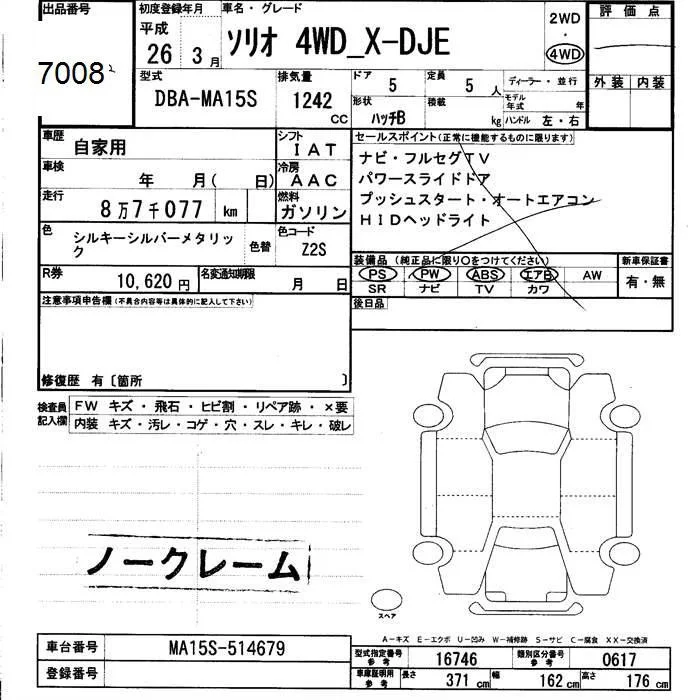 出品番号
7008
初度登録年月
平成
26 3 月
車名・グレード
ソリオ 4WD_X-DJE
2WD
・
4WD
評価点
外装 内装
型式
DBA-MA15S
排気量
1242
CC
ドア
5
定員
5 人
形状
ハッチB
積載
kg
ディーラー・並行
モデル
年式 年
ハンドル 左・右
車歴
自家用
シフト
IAT
車検
年 月( 日)
冷房
AAC
走行
8万7千077 km
燃料
ガソリン
色
シルキーシルバーメタリッ
ク
色替
色コード
Z2S
R券
10,620 円
名変通知期限
月 日
セールスポイント(正常に機能するものに限ります)
ナビ・フルセグTV
パワースライドドア
プッシュスタート・オートエアコン
HIDヘッドライト
装備品 (純正品に限り○をつけてください)
PS PW ABS エアB AW
SR ナビ TV カワ
新車保証書
有・無
後日品
注意事項申告欄(不具合内容等は具体的に記入して下さい)
修復歴 有〔箇所 〕
検査員
記入欄
FW キズ・飛石・ヒビ割・リペア跡・×要
内装 キズ・汚レ・コゲ・穴・スレ・キレ・破レ
ノークレーム
スペア
A-キズ E-エクボ U-凹み W-補修跡 S-サビ C-腐食 XX-交換済
車台番号
MA15S-514679
登録番号
型式指定番号
参考
16746
類別区分番号
参考
0617
車庫証明用
参考
長さ
371 cm
幅
162 cm
高さ
176 cm